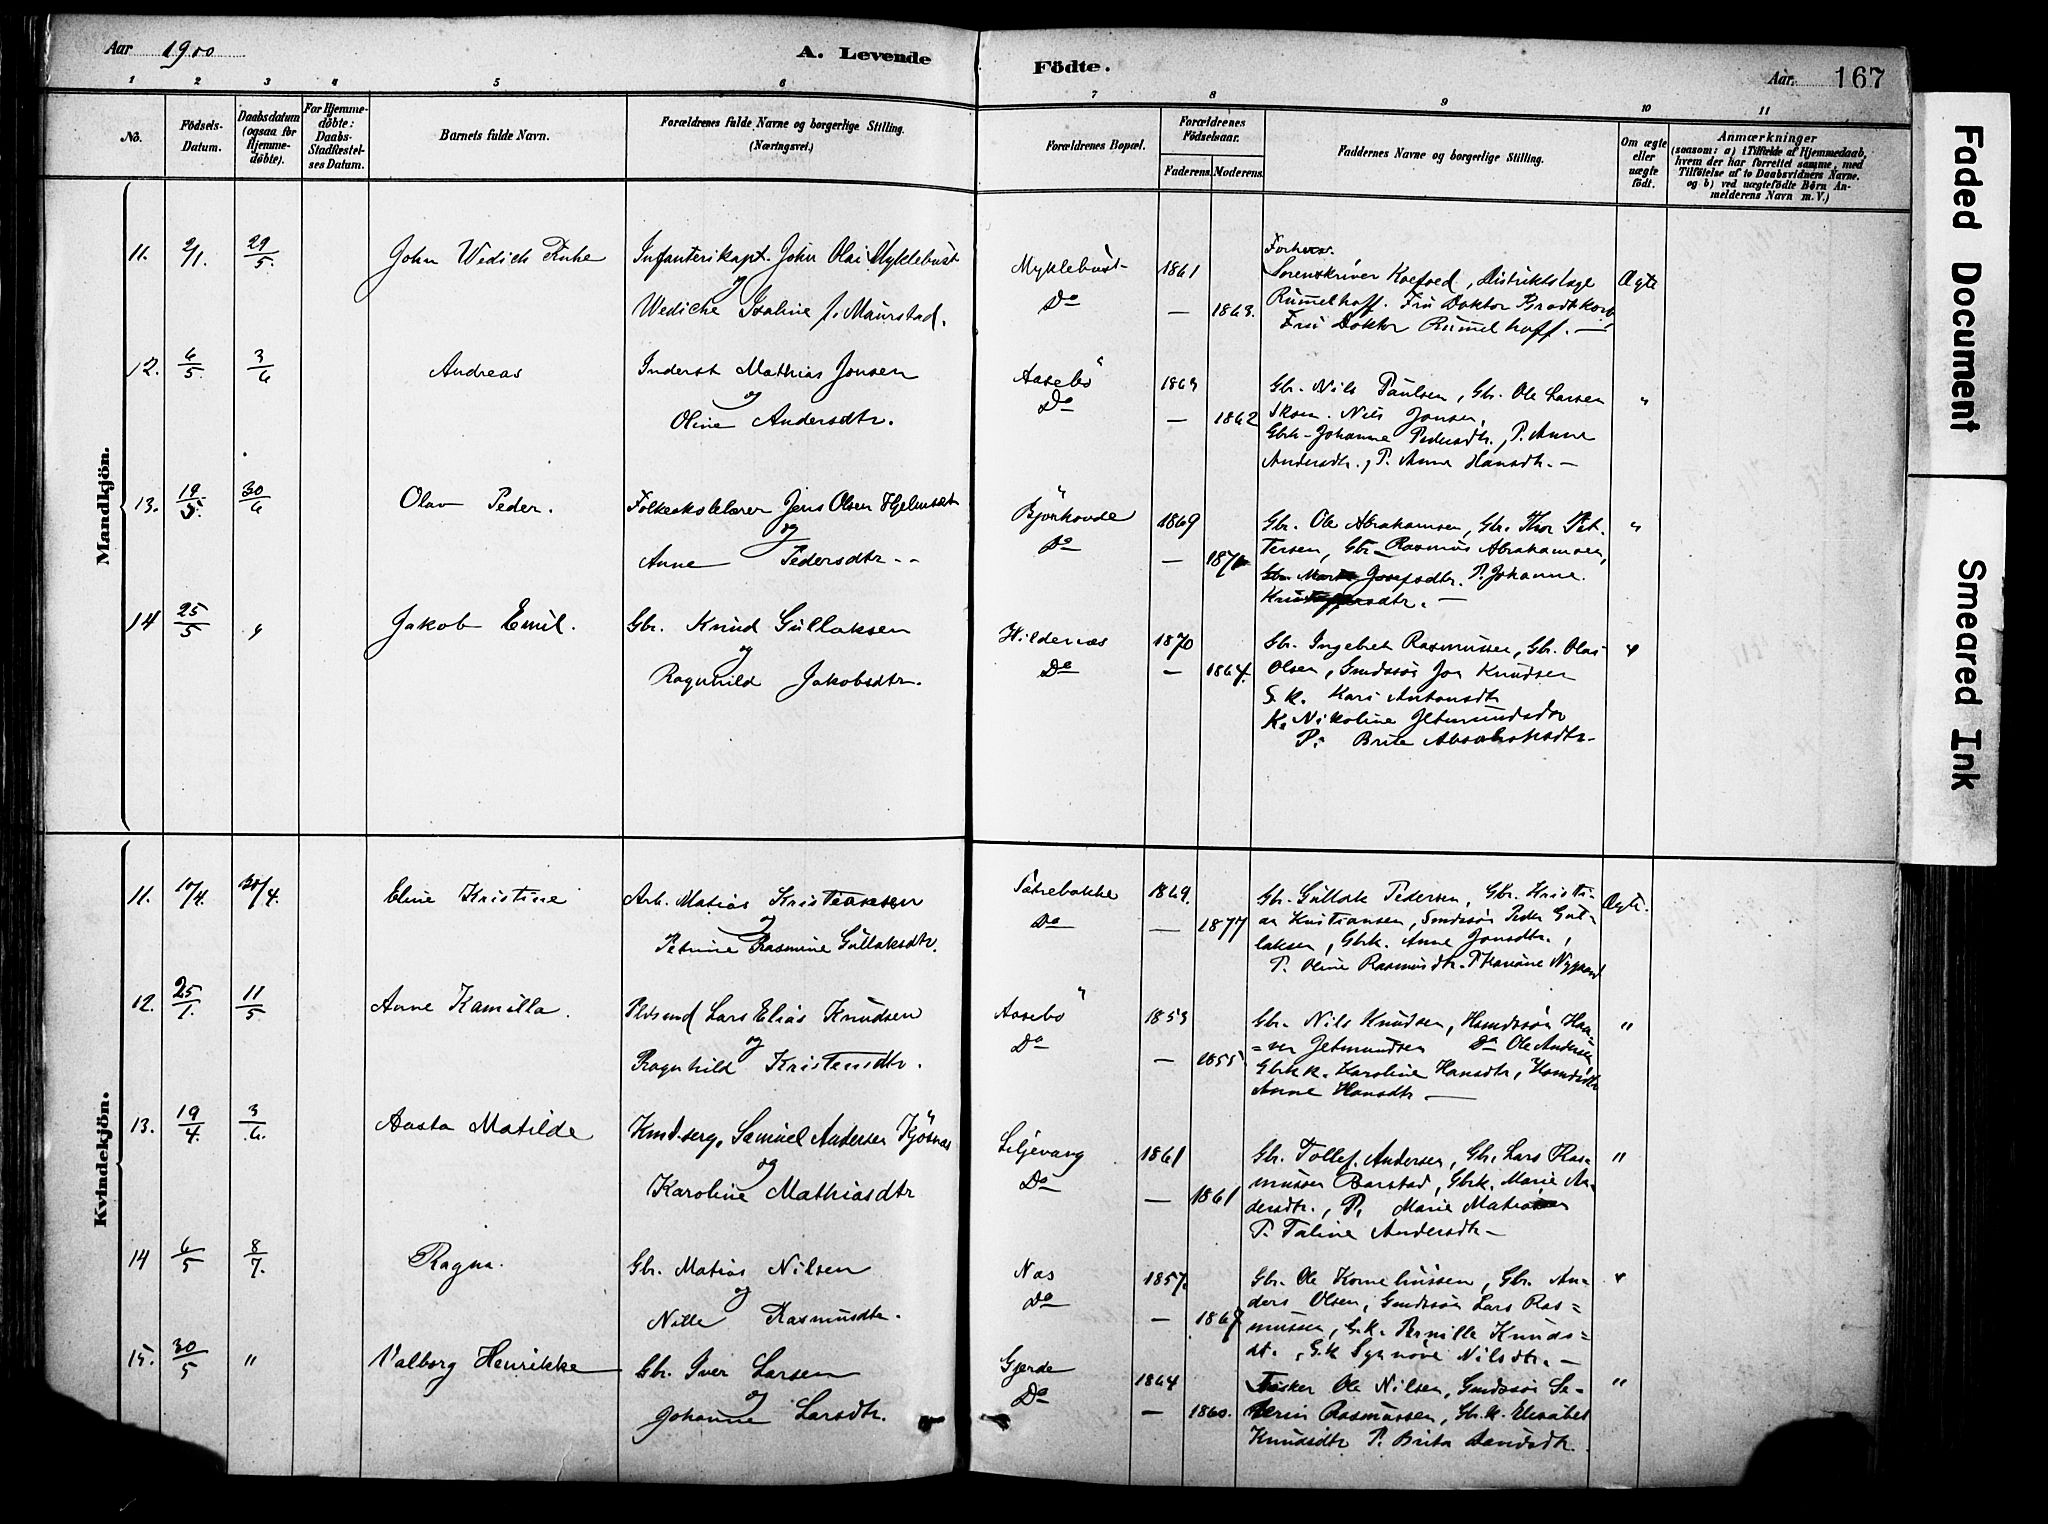 Aar 1900
A. Levende Födte.
Aar. 167
1 2 3 4 5 6 7 8 9 10 11
No.
Födsels-Datum.
Daabsdatum (ogsaa for Hjemmedöbte).
For Hjemmedöbte: Daabs-Stadfæstelses Datum.
Barnets fulde Navn.
Forældrenes fulde Navne og borgerlige Stilling. (Næringsvei.)
Forældrenes Bopæl.
Forældrenes Födselsaar.
Faderens. Moderens.
Faddernes Navne og borgerlige Stilling.
Om ægte eller uægte födt.
Anmærkninger
(saasom: a) i Tilfælde af Hjemmedaab,
hvem der har forrettet samme, med
Tilföielse af to Daabsvidners Navne.
og b) ved uægtefödte Börn An-
melderens Navn m. V.)
Faded Document
Smeared Ink
Mandkjön.
11. 2/1. 29/5. John Wedich
Infanterikapt. John Olai Myklebust
og
Wediche Isaline f. Maurstad.
Myklebust 1861
Do — 1863.
Sorenskriver Koefoed, Distriktslæge
Rumelhoff. Fru Doktor Brodtkorb,
Fru Doktor Rumelhoff. —
Ægte
12. 6/5. 3/6 Andreas
Inderst Mathias Jonsen
og
Oline Andersdtr.
Aasebö 1863
Do — 1862
Gbr. Nils Paulsen, Gbr. Ole Larsen
Skom. Nils Jonsen,
Gbrk. Johanne Pedersdtr., P. Anne
Andersdtr., P. Anne Hansdtr. —
"
13. 19/5. 30/6 Olav Peder.
Folkeskolelærer Jens Olsen Hjelmsæt
og
Anne Pedersdtr --
Björkovde 1869
Do — 1871
Gbr. Ole Abrahamsen, Gbr. Thor Pet-
tersen, Gbr. Rasmus Abrahamsen,
Josefsdtr. P. Johanne
"
14 25/5 " Jakob Emil.
Gbr. Knud Gullaksen
og
Ragnhild Jakobsdtr.
Hildenæs 1870
Do — 1864.
Gbr. Ingebret Rasmussen, Gbr. Olai
Olsen, Gmdssøn Jon Knudsen
G. K. Kari Antonsdtr
K. Nikoline Jetmundsdtr
P. Brite Absalonsdtr-
"
Kvindekjön.
11. 10/4. 30/4. Eline Kristine
Arb. Matias Kristiansen
og
Petrine Rasmine Gullaksdtr.
Tátrebakke 1869.
Do — 1877
Gbr. Gullak Pedersen, Gbr. Kristi-
an Kristiansen, Gmdssøn Peder Gul-
laksen, Gbrk. Anne Jonsdtr.,
P. Oline Rasmusdtr.
Ægte.
12. 25/1. 11/5 Anne Kamilla.
Pldsmd Lars Elias Knudsen
og
Ragnhild Kristensdtr.
Aasebö 1853
Do — 1855
Gbr. Nils Knudsen, Husmdssøn Haa-
= Jetmundsen Do Ole Andersen
Gbrkk. Karoline Hansdtr,
Anne Hansdtr —
"
13. 19/4. 3/6. Aasta Matilde
Kmdserg. Samuel Andersen Kjösnæs
og
Karoline Mathiasdtr
Liljevang 1861
Do — 1861
Gbr. Tollef. Andersen, Gbr. Lars Ras-
mussen Barstad, Gbrk. Marie An-
dersdtr., P. Marie
P. Taline Andersdtr —
"
14 6/5 8/7. Ragna.
Gbr. Matias Nilsen
og
Nille Rasmusdtr.
Nos 1857.
Do — 1867
Gbr. Ole Korneliussen, Gbr. An-
ders Olsen, Gmdssøn Lars Ras=
mussen, G.k. Pernille Knuds=
dt., G.k Synnöve Nilsdtr. —
"
15. 30/5 " Valborg Henrikke
Gbr. Iver Larsen
og
Johanne Larsdtr.
Gjerde 1864
Do — 1860.
Fisker Ole Nilsen, Gmdssøn Se-
verin Rasmussen, Gbr.k. Elisabet
Knudsdtr P. Brita
"